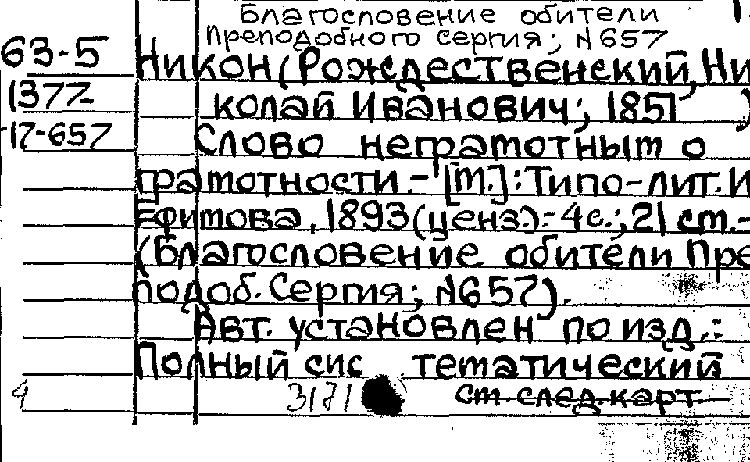 Благословение обители
Преподобного Сергия; N657
63-5 Никон (Рождественский, Ни
1377- колай Иванович; 1851 )
17-657 Слово неграмотным о
грамотности.- [М.]: Типо-лит. И
Ефимова, 1893 (ценз.).- 4с.; 21 см.-
(Благословение обители Пре
подоб. Сергия; N657).
Авт. установлен по изд.:
Полный сис тематический
3171 см. след. карт